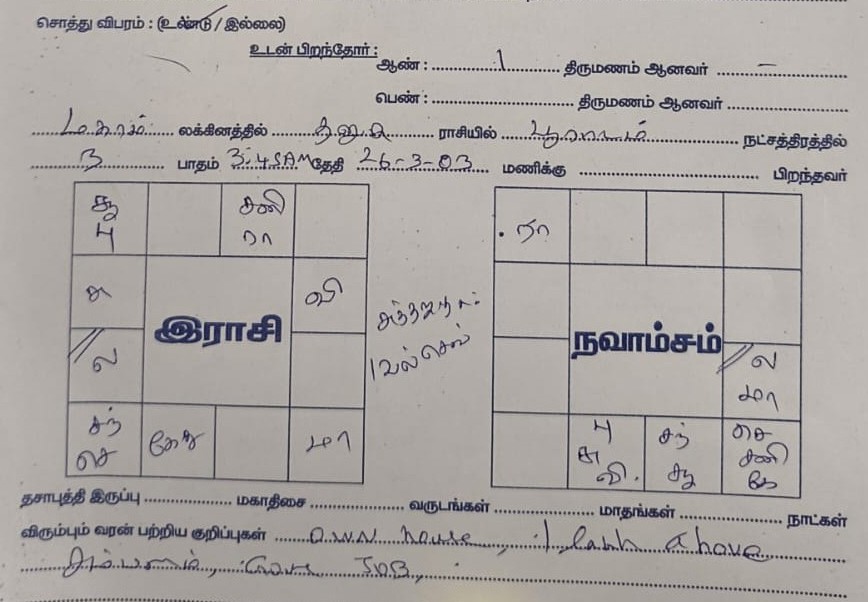 சொத்து விபரம் : (உண்டு / இல்லை)
உடன் பிறந்தோர் :
ஆண் : 1 திருமணம் ஆனவர் –
பெண் : திருமணம் ஆனவர்
மகரம் லக்கினத்தில் தனுசு ராசியில் பூராடம் நட்சத்திரத்தில்
3 பாதம் 3.45AM தேதி 26-3-03 மணிக்கு பிறந்தவர்
சூ சனி . ரா
பு ரா
சு வி
இராசி நவாம்சம்
ல ல
மா
சந் கேது மா பு சந் செ
செ சு சூ சனி
வி. கே
தசாபுத்தி இருப்பு மகாதிசை வருடங்கள் மாதங்கள் நாட்கள்
விரும்பும் வரன் பற்றிய குறிப்புகள் own house, 1 lakh above
சம்பளம், Govt JOB,